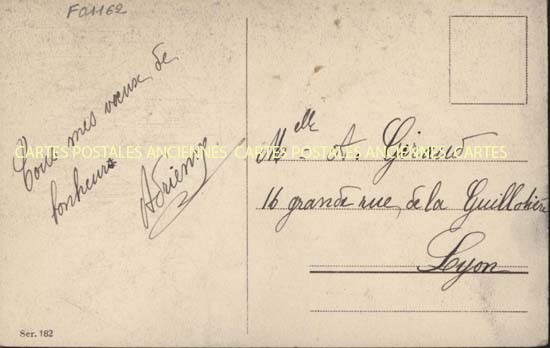 FA1162
Tous mes vœux de
bonheurs
Adrienne
Melle A. Géraud
16 grande rue de la Guillotière
Lyon
CARTES POSTALES ANCIENNES CARTES POSTALES ANCIENNES CARTES POSTALES ANCIENNES
Ser. 182